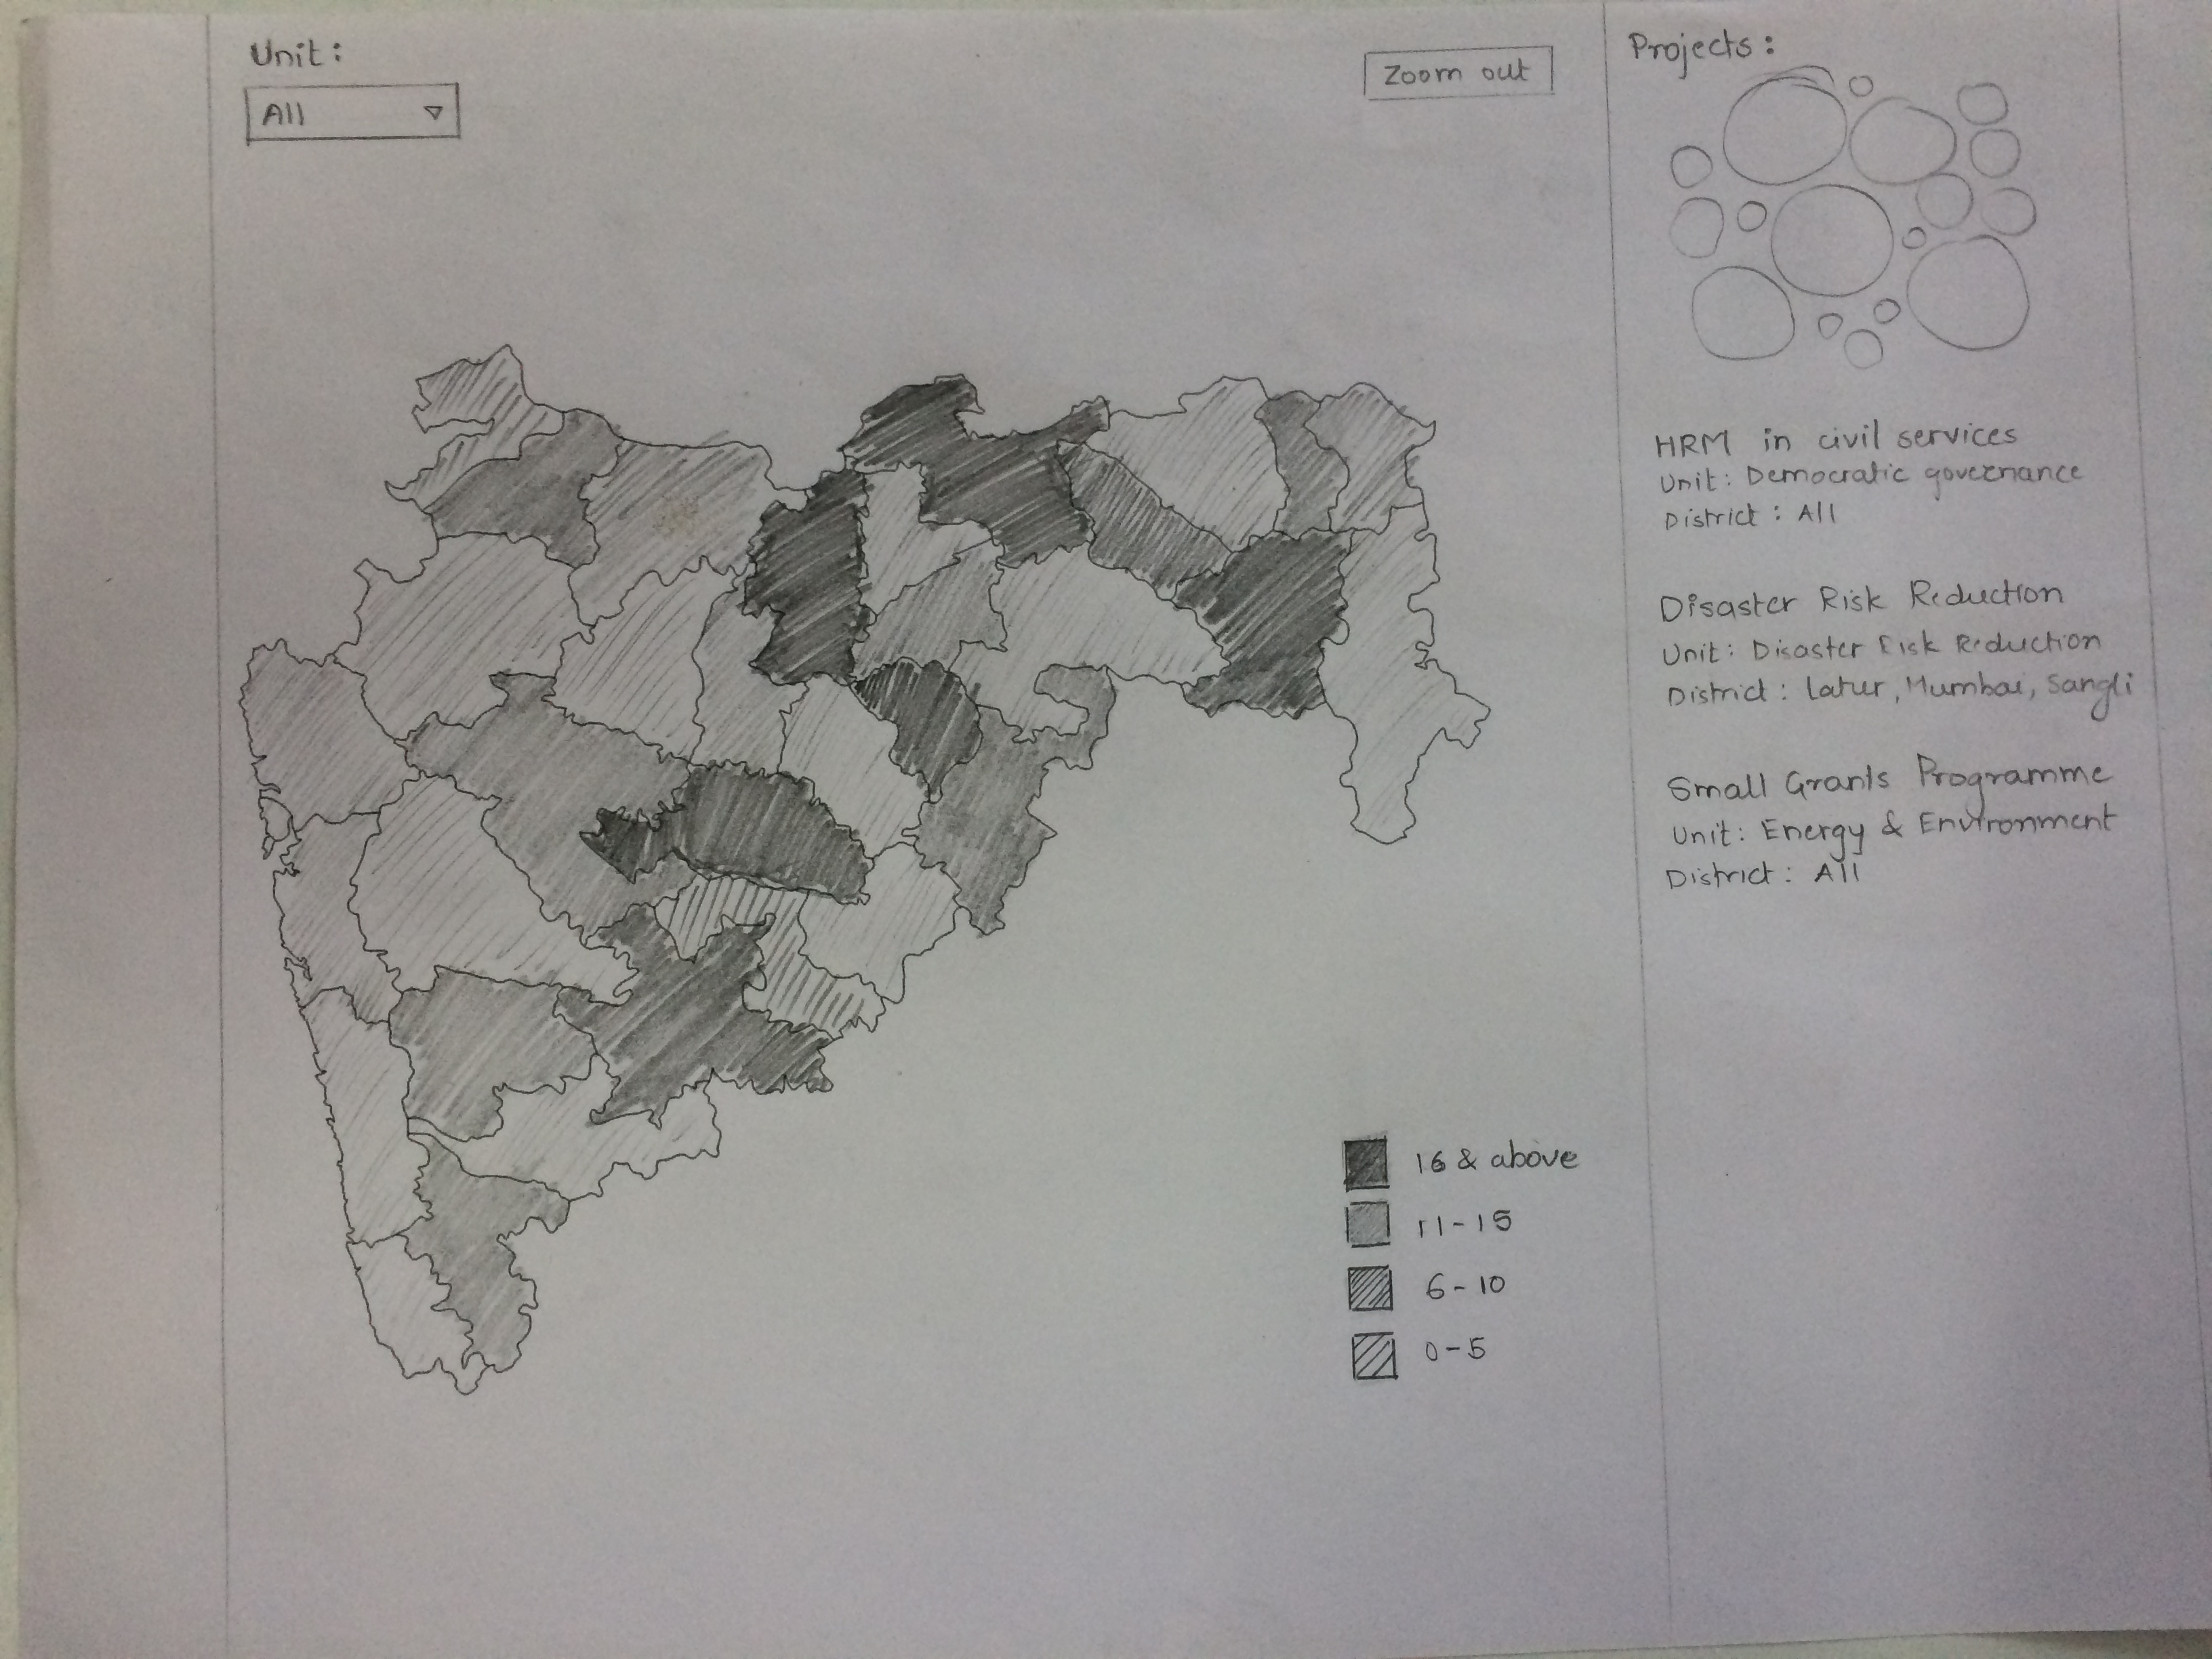 Unit:
All
Zoom out
16 & above
11-15
6-10
0-5
Projects:
HRM in civil services
Unit: Democratic governance
District: All
Disaster Risk Reduction
Unit: Disaster Risk Reduction
District: Latur, Mumbai, Sangli
Small Grants Programme
Unit: Energy & Environment
District: All